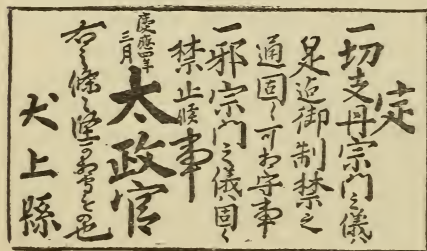 定
一切支丹宗門之儀
是迠御制禁之
通固く可相守事
一邪宗門之儀固く
禁止候事
慶應四年
三月
太政官
右之條々堅可相守者也
犬上縣